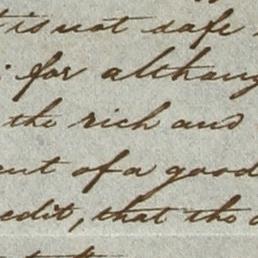 t is not safe
; for althoug
the rich and
ent of a good
edit, that the